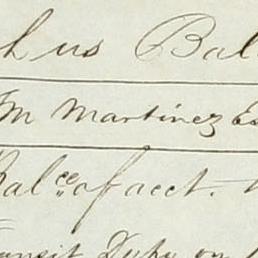 hus Bal
M Martinez Es
Balce of acct. t
ransit Duty on